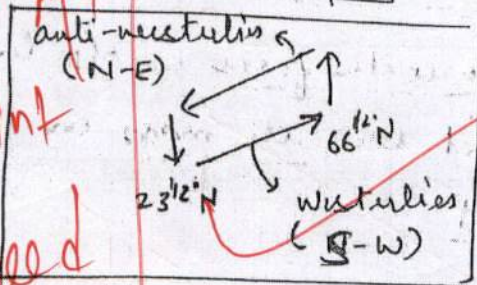 anti-westerlies
(N-E)
nt
66 1/2° N
23 1/2° N
westerlies
(S-W)
eed